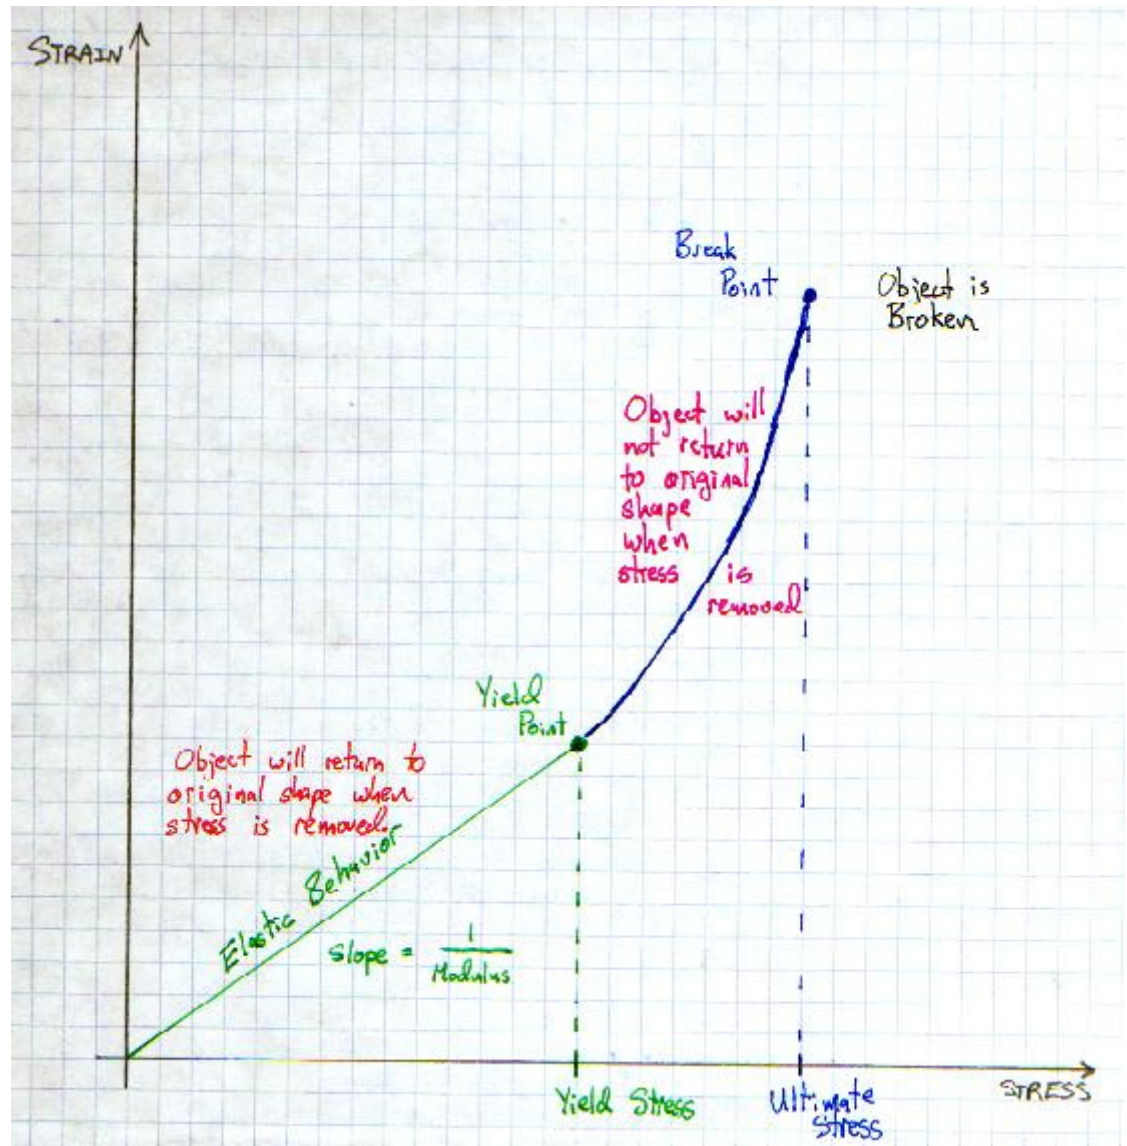 STRAIN
Break
Point
Object is
Broken
Object will
not return
to original
shape
when
stress is
removed
Yield
Point
Object will return to
original shape when
stress is removed.
Elastic Behavior
Slope = 1
Modulus
STRESS
Yield Stress
Ultimate
Stress